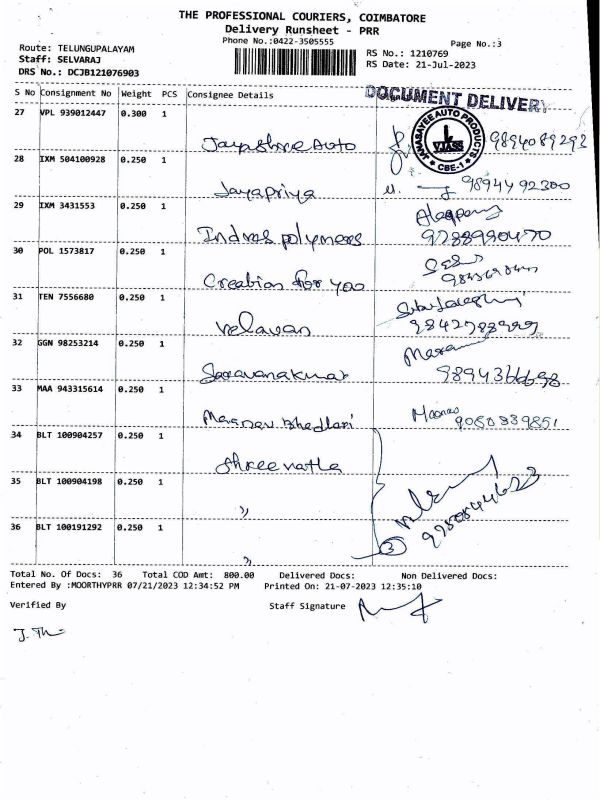 THE PROFESSIONAL COURIERS, COIMBATORE
Delivery Runsheet - PRR
Phone No.:0422-3505555
Page No.:3
Route: TELUNGUPALAYAM
Staff: SELVARAJ
DRS No.: DCJB121076903
RS No.: 1210769
RS Date: 21-Jul-2023
S No Consignment No Weight PCS Consignee Details
DOCUMENT DELIVERY
27 VPL 939012447 0.300 1
Jayashree Auto 9894089292
JAMASAYEE AUTO PRODUCTS
VJASS
CBE-1
28 IXM 504100928 0.250 1
Jayapriya 9894492300
29 IXM 3431553 0.250 1
Indras polymers 9788990470
30 POL 1573817 0.250 1
Creation for you
31 TEN 7556680 0.250 1
Velavan
32 GGN 98253214 0.250 1
Saravanakumar 9894366698
33 MAA 943315614 0.250 1
Bhedlari 9080839851
34 BLT 100904257 0.250 1
Shree
35 BLT 100904198 0.250 1
"
36 BLT 100191292 0.250 1
" 3
Total No. Of Docs: 36 Total COD Amt: 800.00 Delivered Docs: Non Delivered Docs:
Entered By :MOORTHYPRR 07/21/2023 12:34:52 PM Printed On: 21-07-2023 12:35:10
Verified By Staff Signature